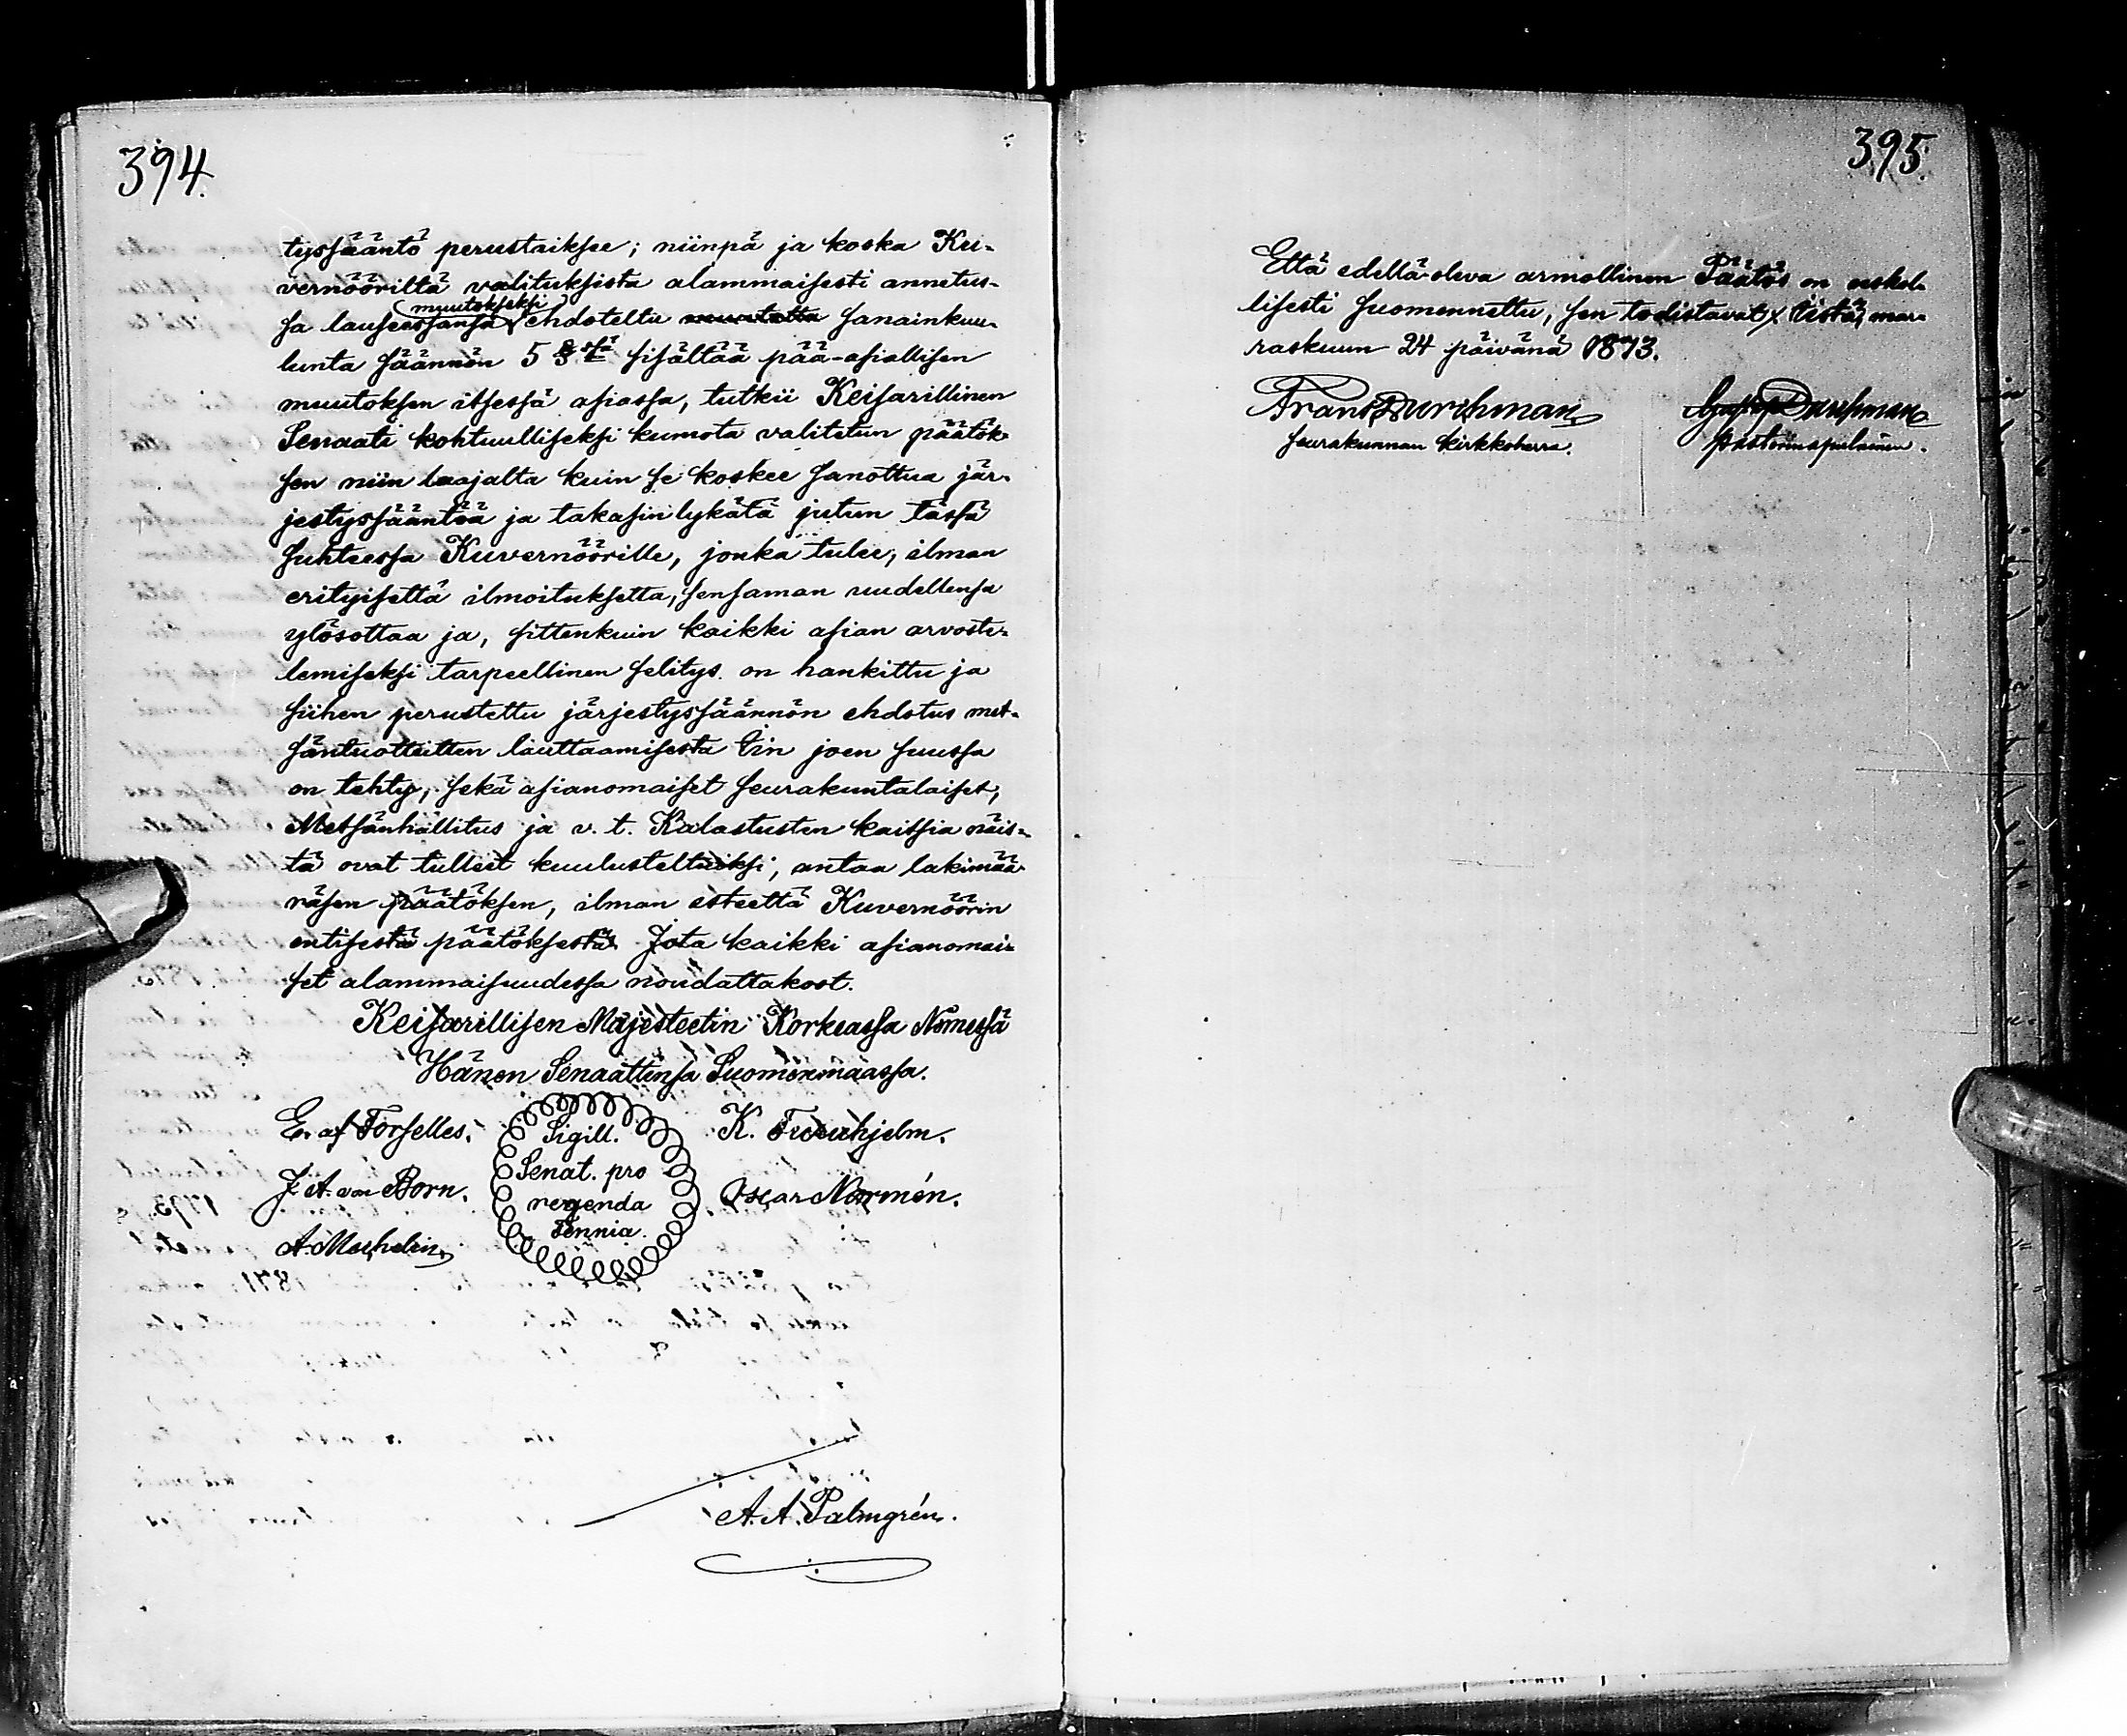 394.
tyssääntö perustaiksee; niinpä ja koska Ku-
vernööriltä valituksista alammaisesti annetus-
muutokseksi
sa lauseessansa ehdoteltu muutettu sanainkuu-
lunta säännön 5 §stä sisältää pää-asiallisen
muutoksen itsessä asiassa, tutkii Keisarillinen
Senaati kohtuulliseksi kumota valitetun päätök-
sen niin laajalta kuin se koskee sanottua jär-
jestyssääntöä ja takasin lykätä jutun tässä
suhteessa Kuvernöörille, jonka tulee, ilman
erityisettä ilmoituksetta, sensaman uudellensa
ylösottaa ja, sittenkuin kaikki asian arvoste-
lemiseksi tarpeellinen selitys on hankittu ja
siihen perustettu järjestyssäännön ehdotus met-
säntuotteitten lauttaamisesta Iin joen suussa
on tehty, sekä asianomaiset seurakuntalaiset,
Metsänhallitus ja v. t. Kalastusten kaitsia näis-
tä ovat tulleet kuulustelluiksi, antaa lakimää-
räsen päätöksen, ilman esteettä Kuvernöörin
entisestä päätöksestä. Jota kaikki asianomai-
set alammaisuudessa noudattakoot.
Keisarillisen Majesteetin Korkeassa Nimessä
Hänen Senaattinsa Suomenmaassa.
E. af Forselles.
K. Furuhjelm.
Sigill.
Senat. pro
regenda
Fennia.
J. A. von Born.
Oscar Norrmén.
A. Mechelin.
A. A. Palmgrén.
395.
Että edelläoleva armollinen Päätös on uskol-
lisesti suomennettu, sen todistavat Iistä, mar-
raskuun 24 päivänä 1873.
Frans Durchman
Durchman
seurakunnan kirkkoherra.
pastorinapulainen.